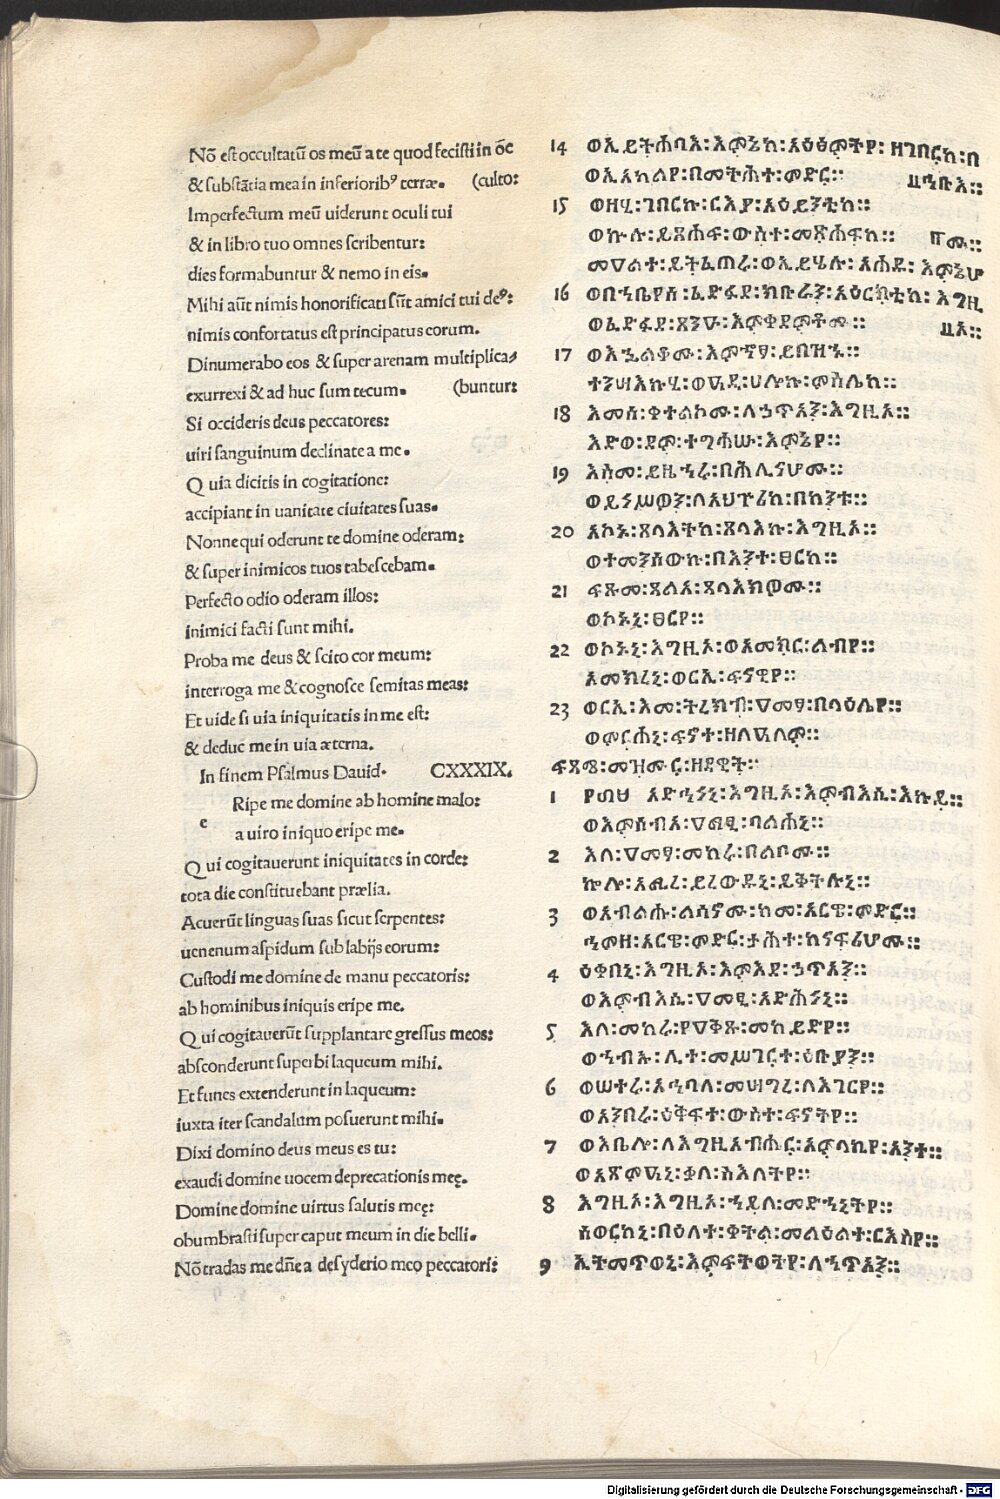 Nō est occultatū os meū a te quod fecisti in ōc
& substātia mea in inferioribꝰ terræ. (culto:
Imperfectum meū uiderunt oculi tui
& in libro tuo omnes scribentur:
dies formabuntur & nemo in eis.
Mihi aūt nimis honorificati sūt amici tui deꝰ:
nimis confortatus est principatus eorum.
Dinumerabo eos & super arenam multiplica⸗
exurrexi & ad huc sum tecum. (buntur:
Si occideris deus peccatores:
uiri sanguinum declinate a me.
Quia dicitis in cogitatione:
accipiant in uanitate ciuitates suas.
Nonne qui oderunt te domine oderam:
& super inimicos tuos tabescebam.
Perfecto odio oderam illos:
inimici facti sunt mihi.
Proba me deus & scito cor meum:
interroga me & cognosce semitas meas:
Et uide si uia iniquitatis in me est:
& deduc me in uia æterna.
In finem Psalmus Dauid. CXXXIX.
e Ripe me domine ab homine malo:
a uiro iniquo eripe me.
Qui cogitauerunt iniquitates in corde:
tota die constituebant prælia.
Acuerūt linguas suas sicut serpentes:
uenenum aspidum sub labijs eorum:
Custodi me domine de manu peccatoris:
ab hominibus iniquis eripe me.
Qui cogitauerūt supplantare gressus meos:
absconderunt superbi laqueum mihi.
Et funes extenderunt in laqueum:
iuxta iter scandalum posuerunt mihi.
Dixi domino deus meus es tu:
exaudi domine uocem deprecationis meę.
Domine domine uirtus salutis meę:
obumbrasti super caput meum in die belli.
Nō tradas me dn̄e a desyderio meo peccatori:
14 ወኢይትሕባእ:እምኔከ:አዕፅምትየ: ዘገበርከ:በ
ወኢአካልየ:በመትሕተ:ምድር::
15 ወዘሂ:ገበርኩ:ርእያ:አዕይንቲከ::
ወኩሉ:ይጸሐፍ:ውስተ:መጽሐፍከ::
መዓልተ:ይትፈጠሩ:ወኢይሄሉ:አሐዱ: እምኔሆ
16 ወበኀቤየሰ:ፈድፋደ:ክቡራን:አዕርክቲከ: እግዚ
ወፈድፋደ:ጸንዑ:እምቀደምቶሙ::
17 ወእኄልቆሙ:እምኖፃ:ይበዝኁ::
ተንሣእኩሂ:ወዓዲ:ሀሎኩ:ምስሌከ::
18 እመሰ:ቀተልኮሙ:ለኃጥአን:እግዚአ::
እድወ:ደም:ተግሕሡ:እምኔየ::
19 እስመ:ይዜኀሩ:በሕሊናሆሙ::
ወይነሥዎን:ለአህጉሪከ:በከንቱ::
20 አኮኑ:ጸላእትከ:ጸላእኩ:እግዚአ::
ወተመንሰውኩ:በእንተ:ፀርከ::
21 ፍጹመ:ጽልአ:ጸላእክዎሙ::
ወኮኑኒ:ፀርየ::
22 እግዚአ:ወአመክር:ልብየ::
አመክረኒ:ወርኢ:ፍናዊየ::
23 ወርኢ:እመ:ትረክብ:ዓመፃ:በላዕሌየ::
ወምርሐኒ:ፍኖተ:ዘለዓለም::
መዝሙር:ዘዳዊት::
1 አድኅነኒ:እግዚአ:እምብእሲ:እኩይ::
ወእምሰብአ:ዓማፂ:ባልሐኒ::
2 እለ:ዓመፃ:መከሩ:በልቦሙ::
ኵሎ:አሚረ:ይረውዱኒ:ይቅትሉኒ::
3 ወአብልሑ:ልሳኖሙ:ከመ:አርዌ:ምድር::
ኀምዘ:አርዌ:ምድር:ታሕተ:ከናፍሪሆሙ::
4 ዕቀበኒ:እግዚአ:እምእደ:ኃጥአን::
ወእምብእሲ:ዓመፂ:አድሕነኒ::
5 እለ:መከሩ:የዓቅጹ:መከይድየ::
ወኀብኡ:ሊተ:መሥገርተ:ዕቡያን::
6 ወሠተሩ:አኀባለ:መሣግረ:ለእገርየ::
ወአንበሩ:ዕቅፍተ:ውስተ:ፍኖትየ::
7 ወእቤሎ:ለእግዚአብሔር:አምላኪየ:አንተ::
ወአጽምዓኒ:ቃለ:ስእለትየ::
8 እግዚአ:እግዚአ:ኀይለ:መድኀኒትየ::
ሰወርከኒ:በዕለተ:ቀትል:መልዕልተ:ርእስየ::
9 ኢትመጥወኒ:እምፍትወትየ:ለኀጥአን::
Digitalisierung gefördert durch die Deutsche Forschungsgemeinschaft - DFG